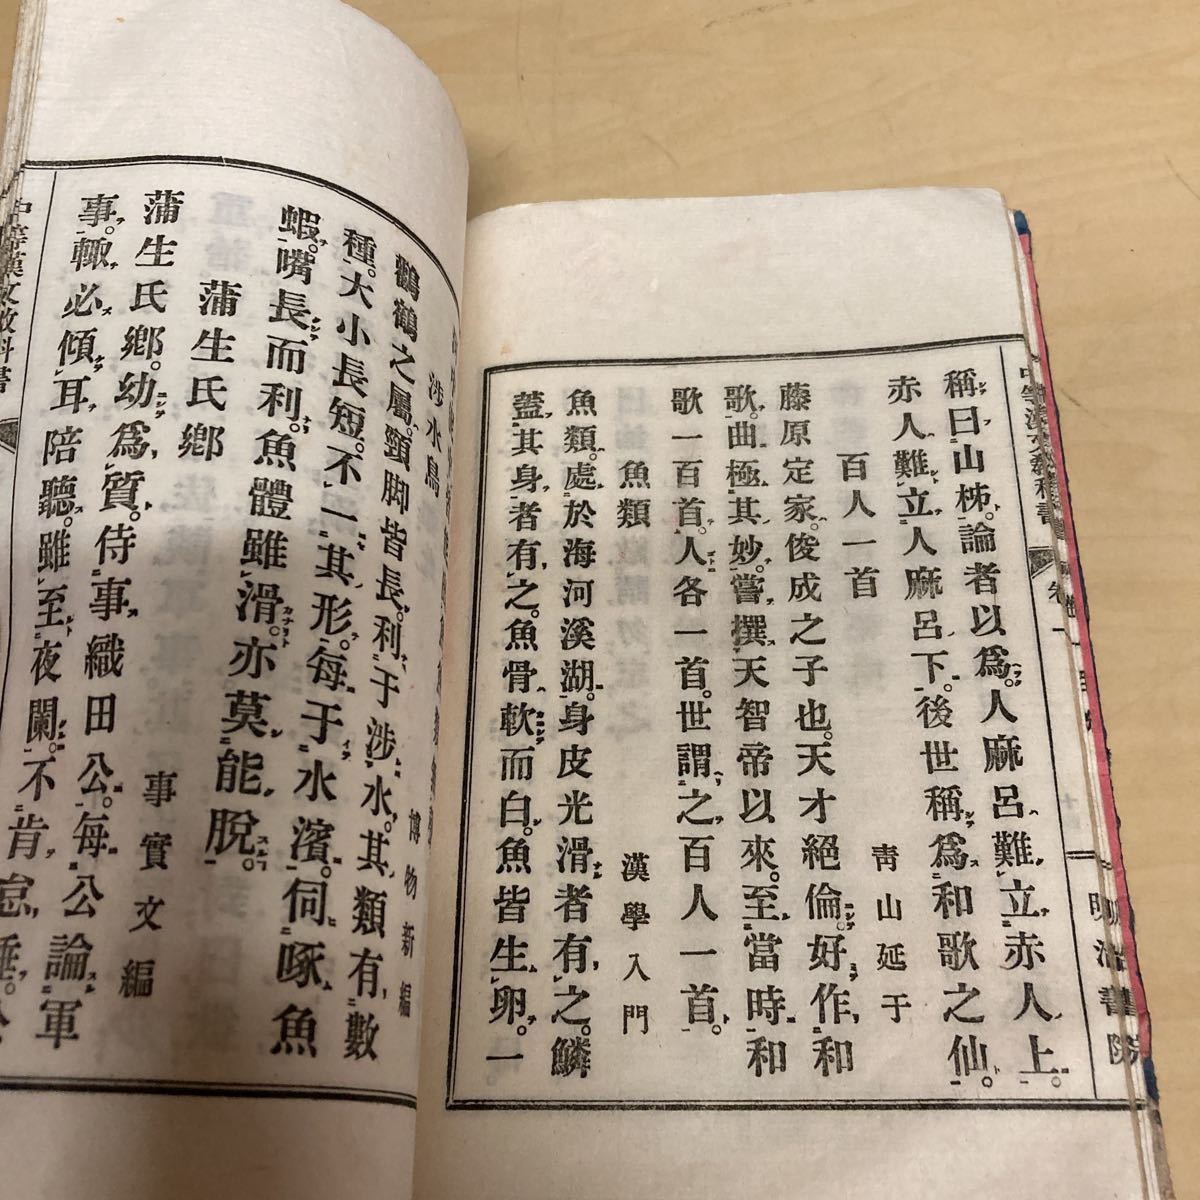 稱曰山柹。論者以爲。人麻呂難立赤人上。
赤人難立人麻呂下。後世稱爲和歌之仙。
百人一首
青山延于
藤原定家。俊成之子也。天才絕倫。好作和
歌。曲極其妙。嘗撰天智帝以來。至當時和
歌一百首。人各一首。世謂之百人一首。
魚類
漢學入門
魚類。處於海河溪湖。身皮光滑者有之。鱗
蓋其身者有之。魚骨軟而白。魚皆生卵。一
明治書院
涉水鳥
博物新編
鶴之屬。頸脚皆長。利于涉水。其類有數
種。大小長短。不一其形。每于水濱。伺啄魚
蝦。嘴長而利。魚體雖滑。亦莫能脫。
蒲生氏鄉
事實文編
蒲生氏鄉。幼爲質。侍事織田公。每公論軍
事。輙必傾耳陪聽。雖至夜闌。不肯怠
中等漢文敎科書